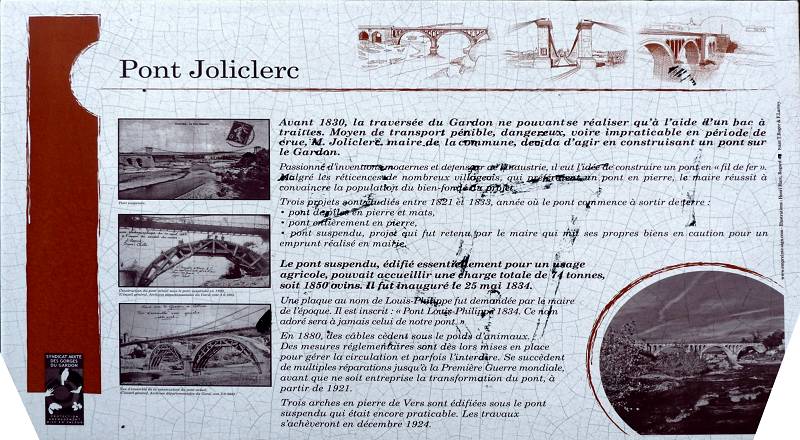 Pont Joliclerc
Avant 1830, la traversée du Gardon ne pouvant se réaliser qu'à l'aide d'un bac à
trailles. Moyen de transport pénible, dangereux, voire impraticable en période de
crue, M. Joliclerc, maire de la commune, décida d'agir en construisant un pont sur
le Gardon.
Passionné d'inventions modernes et défenseur de l'industrie, il eut l'idée de construire un pont en « fil de fer ».
Malgré les réticences de nombreux villageois, qui préféraient un pont en pierre, le maire réussit à
convaincre la population du bien-fondé du projet.
Trois projets sont étudiés entre 1821 et 1833, année où le pont commence à sortir de terre :
• pont de piles en pierre et mats,
• pont entièrement en pierre,
• pont suspendu, projet qui fut retenu par le maire qui mit ses propres biens en caution pour un
emprunt réalisé en mairie.
Le pont suspendu, édifié essentiellement pour un usage
agricole, pouvait accueillir une charge totale de 74 tonnes,
soit 1850 ovins. Il fut inauguré le 25 mai 1834.
Une plaque au nom de Louis-Philippe fut demandée par le maire
de l'époque. Il est inscrit : « Pont Louis-Philippe 1834. Ce nom
adoré sera à jamais celui de notre pont. »
En 1880, des câbles cèdent sous le poids d'animaux.
Des mesures réglementaires sont dès lors mises en place
pour gérer la circulation et parfois l'interdire. Se succèdent
de multiples réparations jusqu'à la Première Guerre mondiale,
avant que ne soit entreprise la transformation du pont, à
partir de 1921.
Trois arches en pierre de Vers sont édifiées sous le pont
suspendu qui était encore praticable. Les travaux
s'achèveront en décembre 1924.
Pont suspendu.
SYNDICAT MIXTE
DES GORGES
DU GARDON